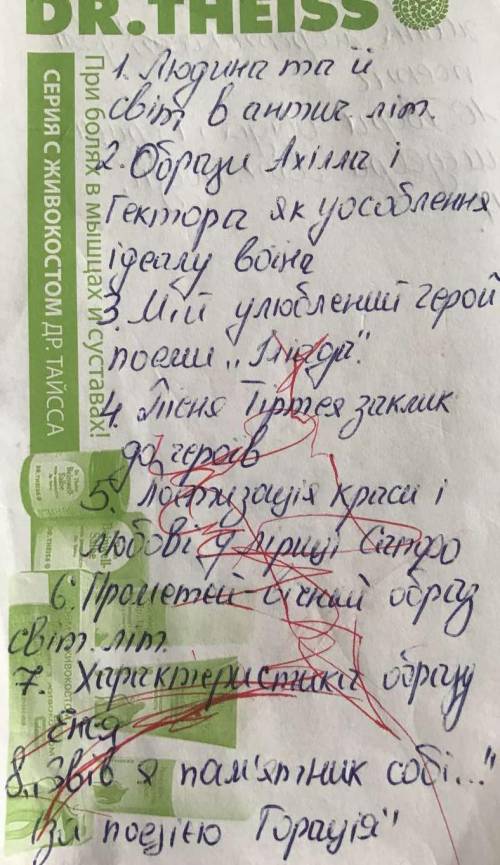 DR.THEISS
При болях в мышцах и суставах!
СЕРИЯ С ЖИВОКОСТОМ ДР. ТАЙССА
1. Людина та її
світ в антич. літ.
2. Образи Ахілла і
Гектора як уособлення
ідеалу воїна
3. Мій улюблений герой
поеми „Іліада".
4. Пісня Тіртея заклик
до героїв
5. Поетизація краси і
любові у ліриці Сапфо
6. Прометей-вічний образ
світ. літ.
7. Характеристика образу
Енея
8. „Звів я пам'ятник собі..."
(за поезією Горація"